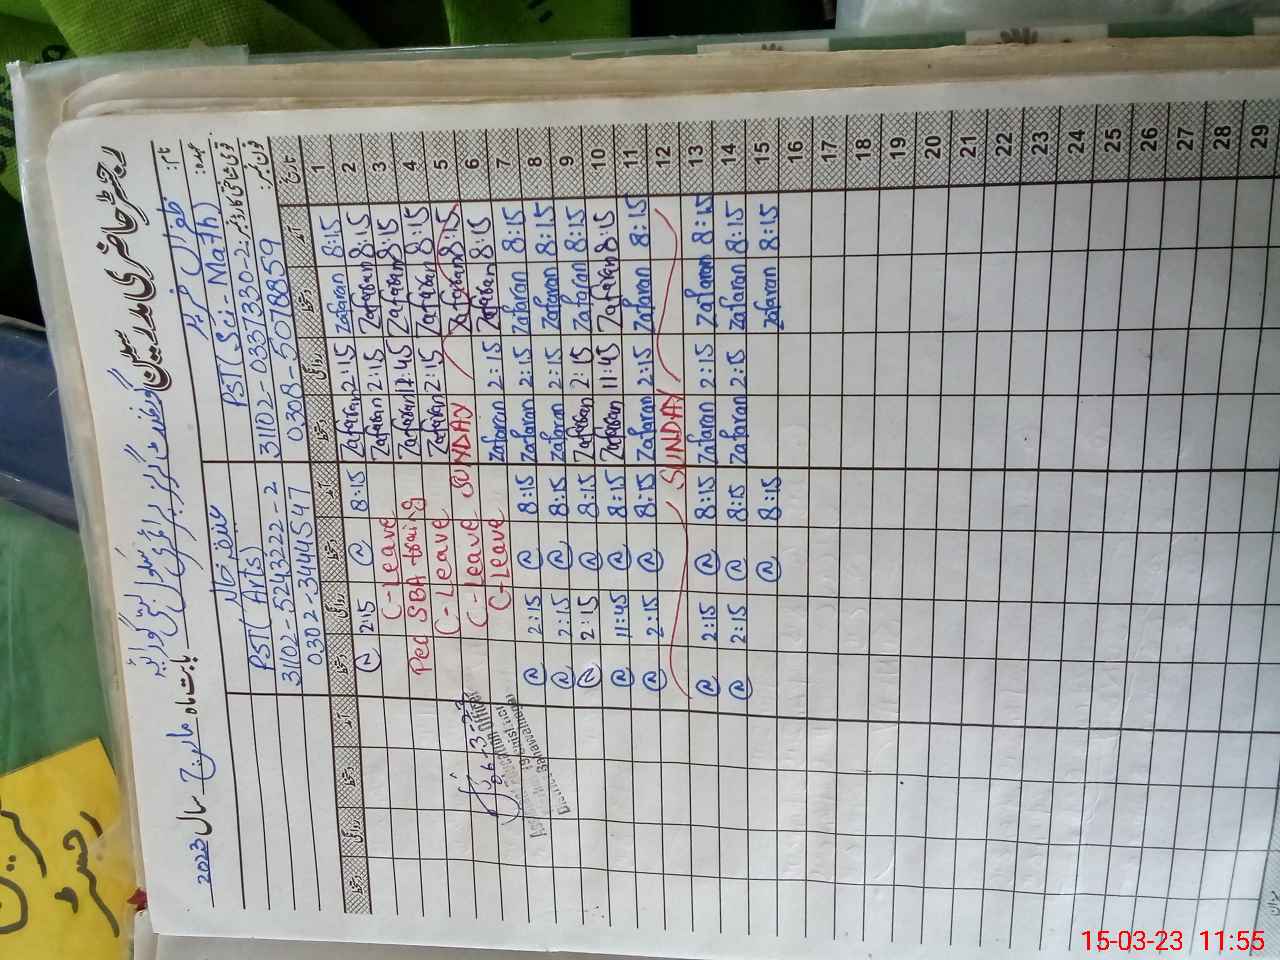 رجسٹر حاضری مدرسین گورنمنٹ گرلز پرائمری سکول
بابت ماہ مارچ سال 2023
نام:
عہدہ: PST (Sci-Math) PST (Arts)
قومی شناختی کارڈ نمبر: 31102-0331330-2 31102-5243222-2
فون نمبر: 0308-5078859 0302-3444547
تاریخ آمد دستخط روانگی دستخط آمد دستخط روانگی دستخط آمد دستخط روانگی دستخط
1 8:15 Zafaran 2:15 Zafaran 8:15 2:15
2 8:15 Zafaran 2:15 Zafaran C-Leave
3 8:15 Zafaran Zafaran SBA
4 8:15 Zafaran 2:15 Zafaran C-Leave
5 8:15 Zafaran SUNDAY C-Leave
6 8:15 Zafaran 2:15 Zafaran C-Leave
7 8:15 Zafaran 2:15 Zafaran 8:15 2:15
8 8:15 Zafaran 2:15 Zafaran 8:15 2:15
9 8:15 Zafaran 2:15 Zafaran 8:15 2:15
10 8:15 Zafaran 11:45 Zafaran 8:15 11:45
11 8:15 Zafaran 2:15 Zafaran 8:15 2:15
12 SUNDAY
13 8:15 Zafaran 2:15 Zafaran 8:15 2:15
14 8:15 Zafaran 2:15 Zafaran 8:15 2:15
15 8:15 Zafaran 8:15
16
17
18
19
20
21
22
23
24
25
26
27
28
29
Education Officer
District Bahawalnagar
رجسٹر
15-03-23 11:55